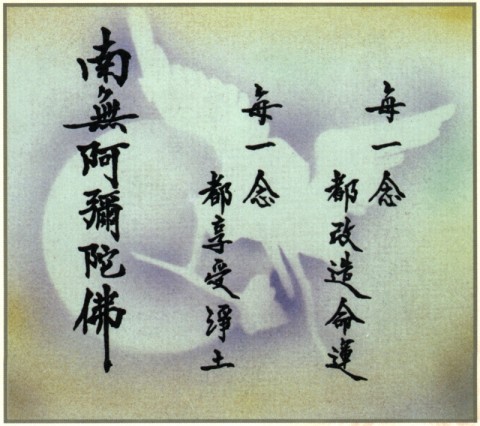 每一念
都改造命運
每一念
都享受淨土
南無阿彌陀佛